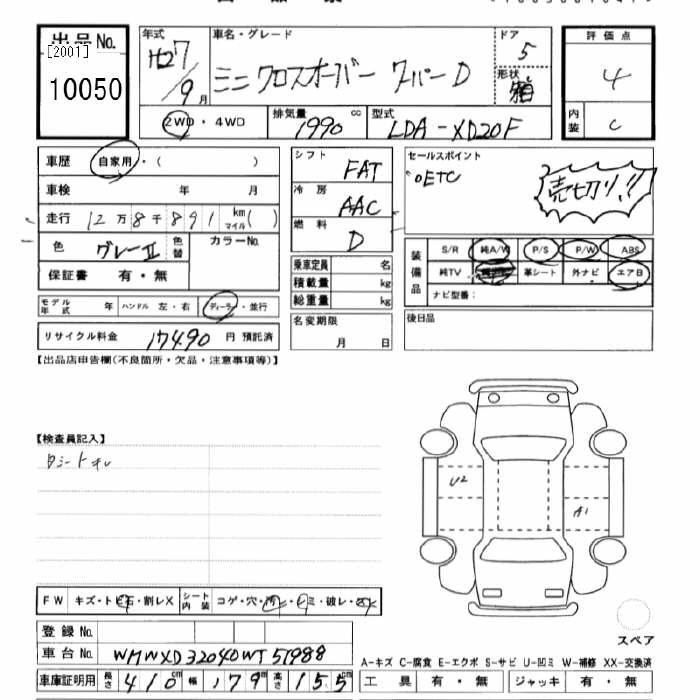 出品No.
[2001]
10050
年式
H27/9月
車名・グレード
ミニクロスオーバー クーパーD
ドア
5
形状
箱
評価点
4
内装
C
2WD・4WD
排気量
1990 cc
型式
LDA-XD20F
車歴 自家用・( )
車検 年 月
走行 12万8千891 km マイル ( )
色 グレーII 色替 カラーNo.
保証書 有・無
モデル年式 年 ハンドル 左・右 ディーラー・並行
リサイクル料金 17490 円 預託済
シフト FAT
冷房 AAC
燃料 D
乗車定員 名
積載量 kg
総重量 kg
名変期限
月 日
セールスポイント
ETC
売切り!!
装備品
S/R 純A/W P/S P/W ABS
純TV 革シート 外ナビ エアB
ナビ型番:
後日品
【出品店申告欄(不良箇所・欠品・注意事項等)】
【検査員記入】
U2
A1
FW キズ・トビ石・割レX シート内装 コゲ・穴・汚レ・シミ・破レ
登録No.
車台No. WMWXD32040WT51988
車庫証明用 長さ 410cm 幅 179cm 高さ 155cm
スペア
A-キズ C-腐食 E-エクボ S-サビ U-凹ミ W-補修 XX-交換済
工具 有・無 ジャッキ 有・無